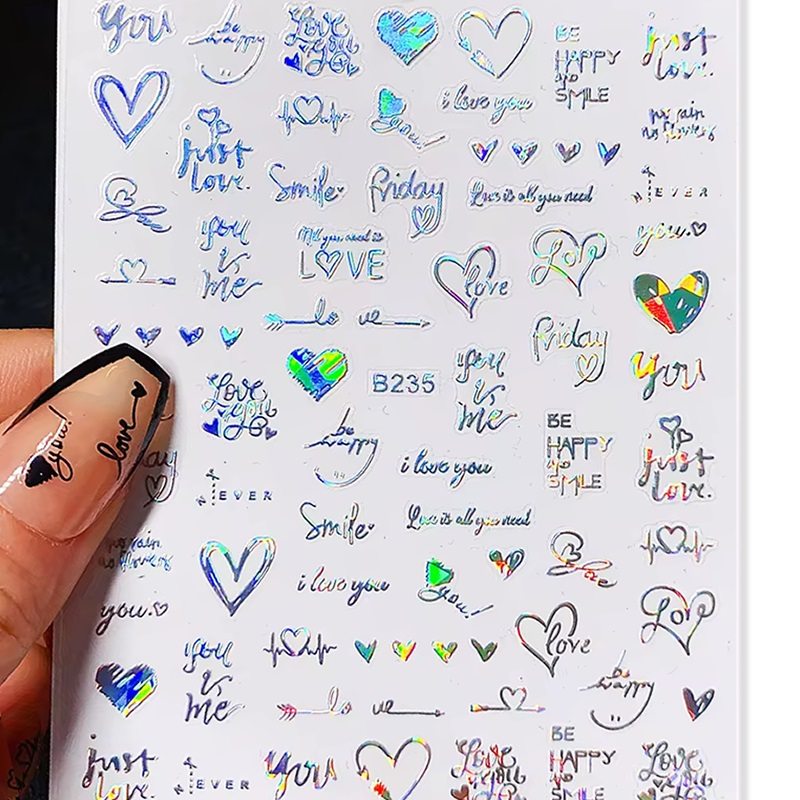 you
be
happy
Love
you
BE
HAPPY
SMILE
just
love.
i love you
you!
no rain
no flowers
just
love.
Smile
friday
Love is all you need
EVER
you
is
me
All you need is
LOVE
love
Lov
you.
lo ve
friday
you
Love
you
B235
you
is
me
be
happy
BE
HAPPY
SMILE
just
love.
you!
love
i love you
day
EVER
Smile
Love is all you need
no rain
no flowers
i love you
you!
love
you.
love
Lov
you
is
me
lo ve
be
happy
just
love
EVER
you
Love
you
BE
HAPPY
SMILE
Love
you